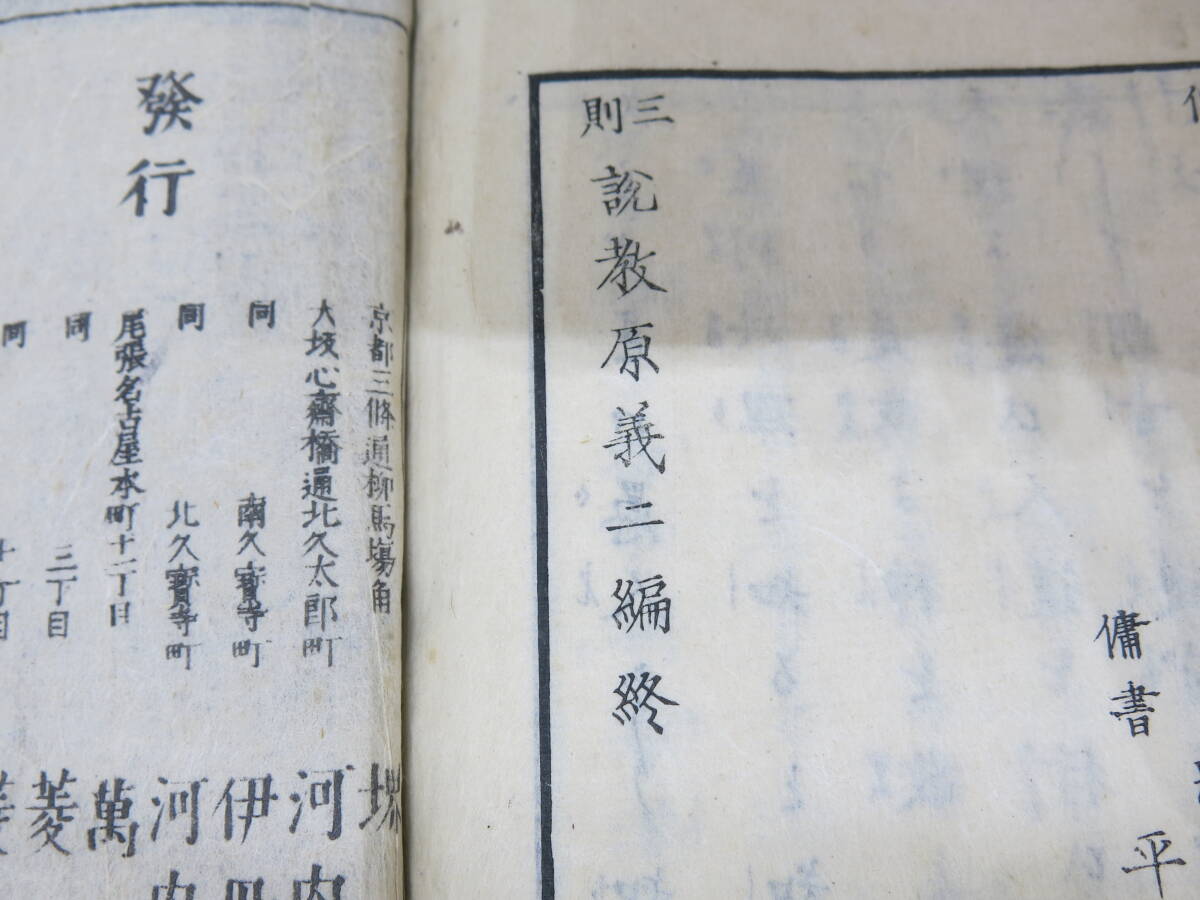 傭書
平
三則説教原義二編終
京都三條通柳馬場角
大坂心齋橋通北久太郎町 河内
同 南久寶寺町 伊
同 北久寶寺町 河内
尾張名古屋本町十二丁目 萬
同 三丁目 菱
同 十丁目
發行